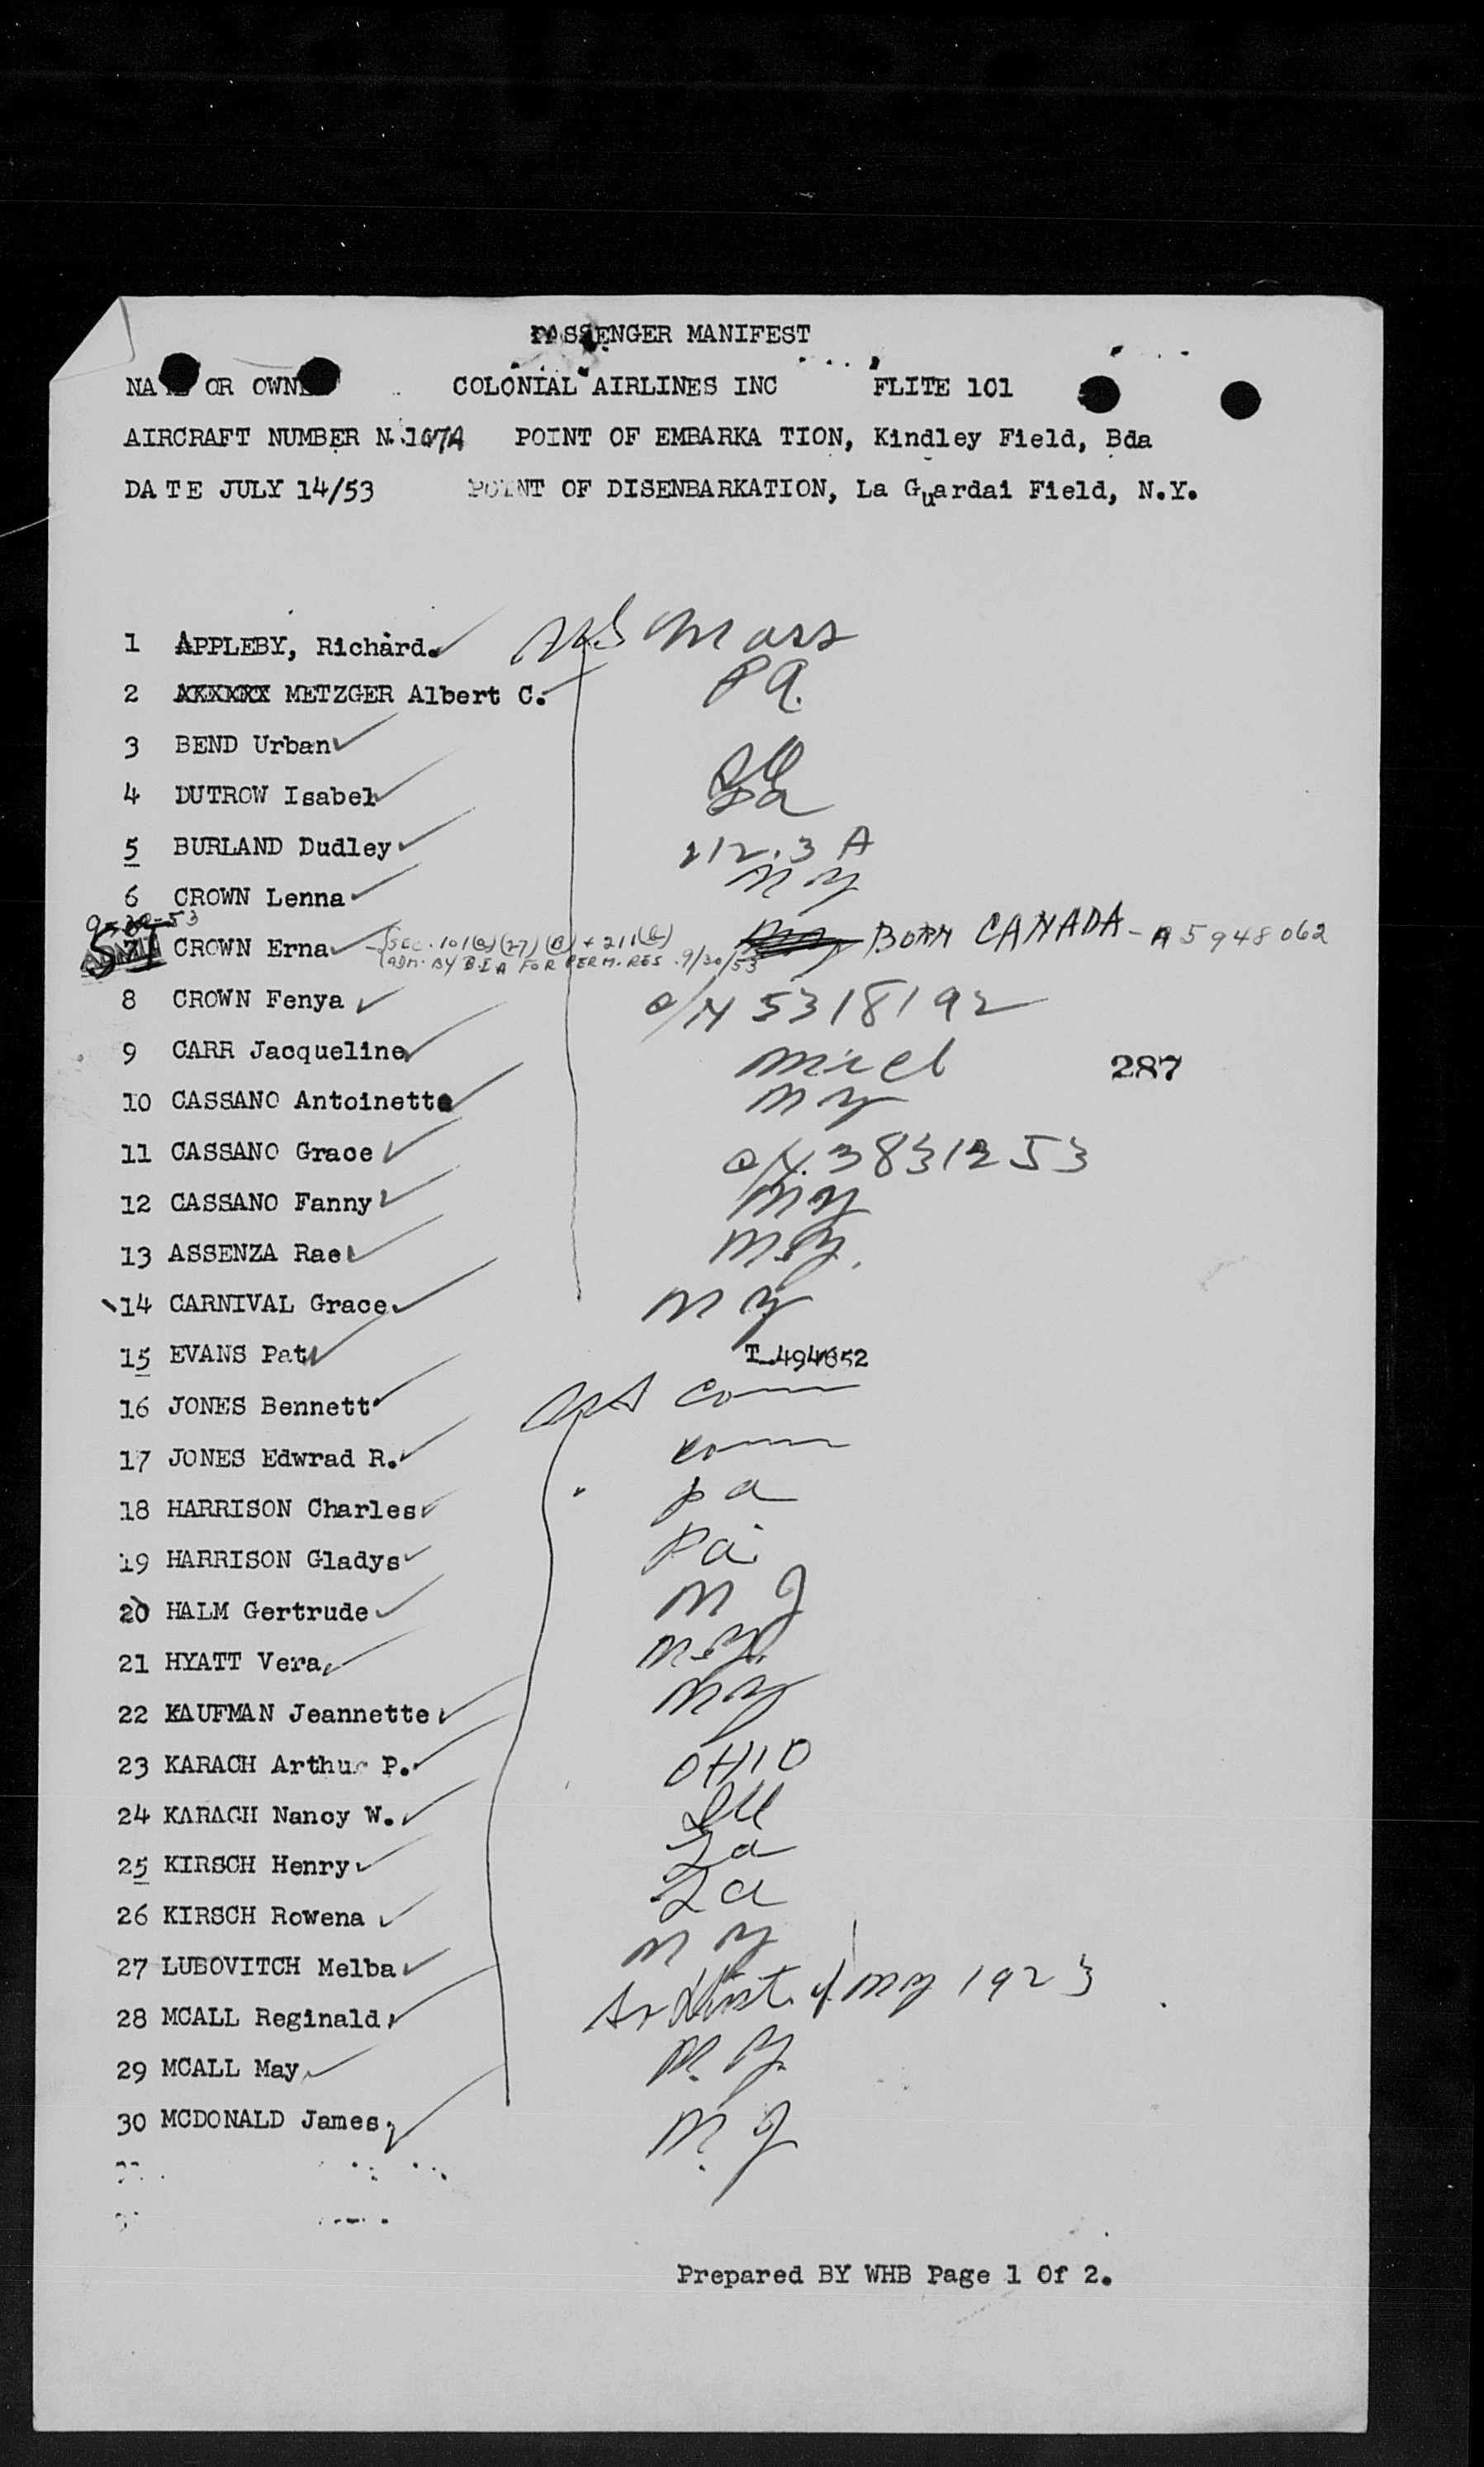 PASSENGER MANIFEST
NA OR OWN COLONIAL AIRLINES INC FLITE 101
AIRCRAFT NUMBER N. 107A POINT OF EMBARKA TION, Kindley Field, Bda
DA TE JULY 14/53 POINT OF DISENBARKATION, La Guardai Field, N.Y.
1 APPLEBY, Richard. US Mass
2 METZGER Albert C. Pa.
3 BEND Urban Ill
4 DUTROW Isabel
5 BURLAND Dudley 212.3 A
6 CROWN Lenna NY
9-30-53
ADMIT CROWN Erna - (SEC. 101(a)(27)(B) + 211(b) BORN CANADA - A5948062
(ADM. BY B.I.A FOR PERM. RES. 9/30/53
8 CROWN Fenya c/N 5318192
9 CARR Jacqueline Mich 287
10 CASSANO Antoinette NY
11 CASSANO Grace c/N. 3831253
12 CASSANO Fanny NY
13 ASSENZA Rae N.Y.
14 CARNIVAL Grace NY
15 EVANS Pat T-494652
16 JONES Bennett US Conn
17 JONES Edwrad R. Conn
18 HARRISON Charles Pa
19 HARRISON Gladys Pa.
20 HALM Gertrude N J
21 HYATT Vera N.Y.
22 KAUFMAN Jeannette NY
23 KARACH Arthur P. OHIO
24 KARACH Nancy W. Ill
25 KIRSCH Henry La
26 KIRSCH Rowena La
27 LUBOVITCH Melba NY
28 MCALL Reginald So Dist. NY 1923
29 MCALL May N.Y.
30 MCDONALD James N. J
Prepared BY WHB Page 1 Of 2.